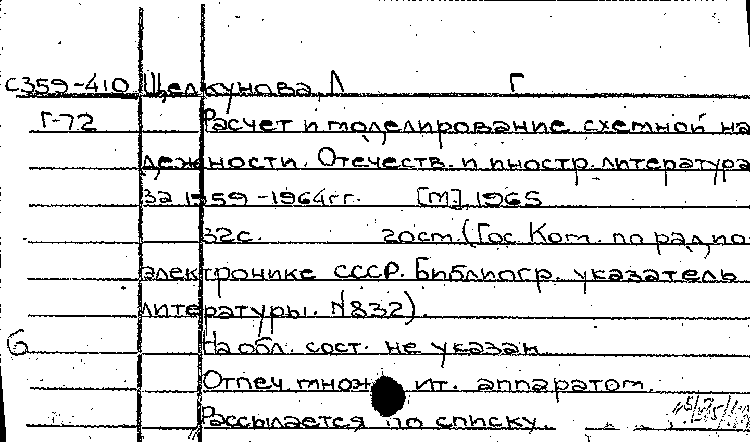 С359-410 Щелкунова, Л Г
Г-72 Расчет и моделирование схемной на
дежности. Отечеств. и иностр. литература
за 1959-1964гг. [М], 1965
32с. 20ст. (Гос. Ком. по радио-
электронике СССР. Библиогр. указатель
литературы. N832).
б На обл. сост. не указан
Отпеч. множ ит. аппаратом.
Рассылается по списку.